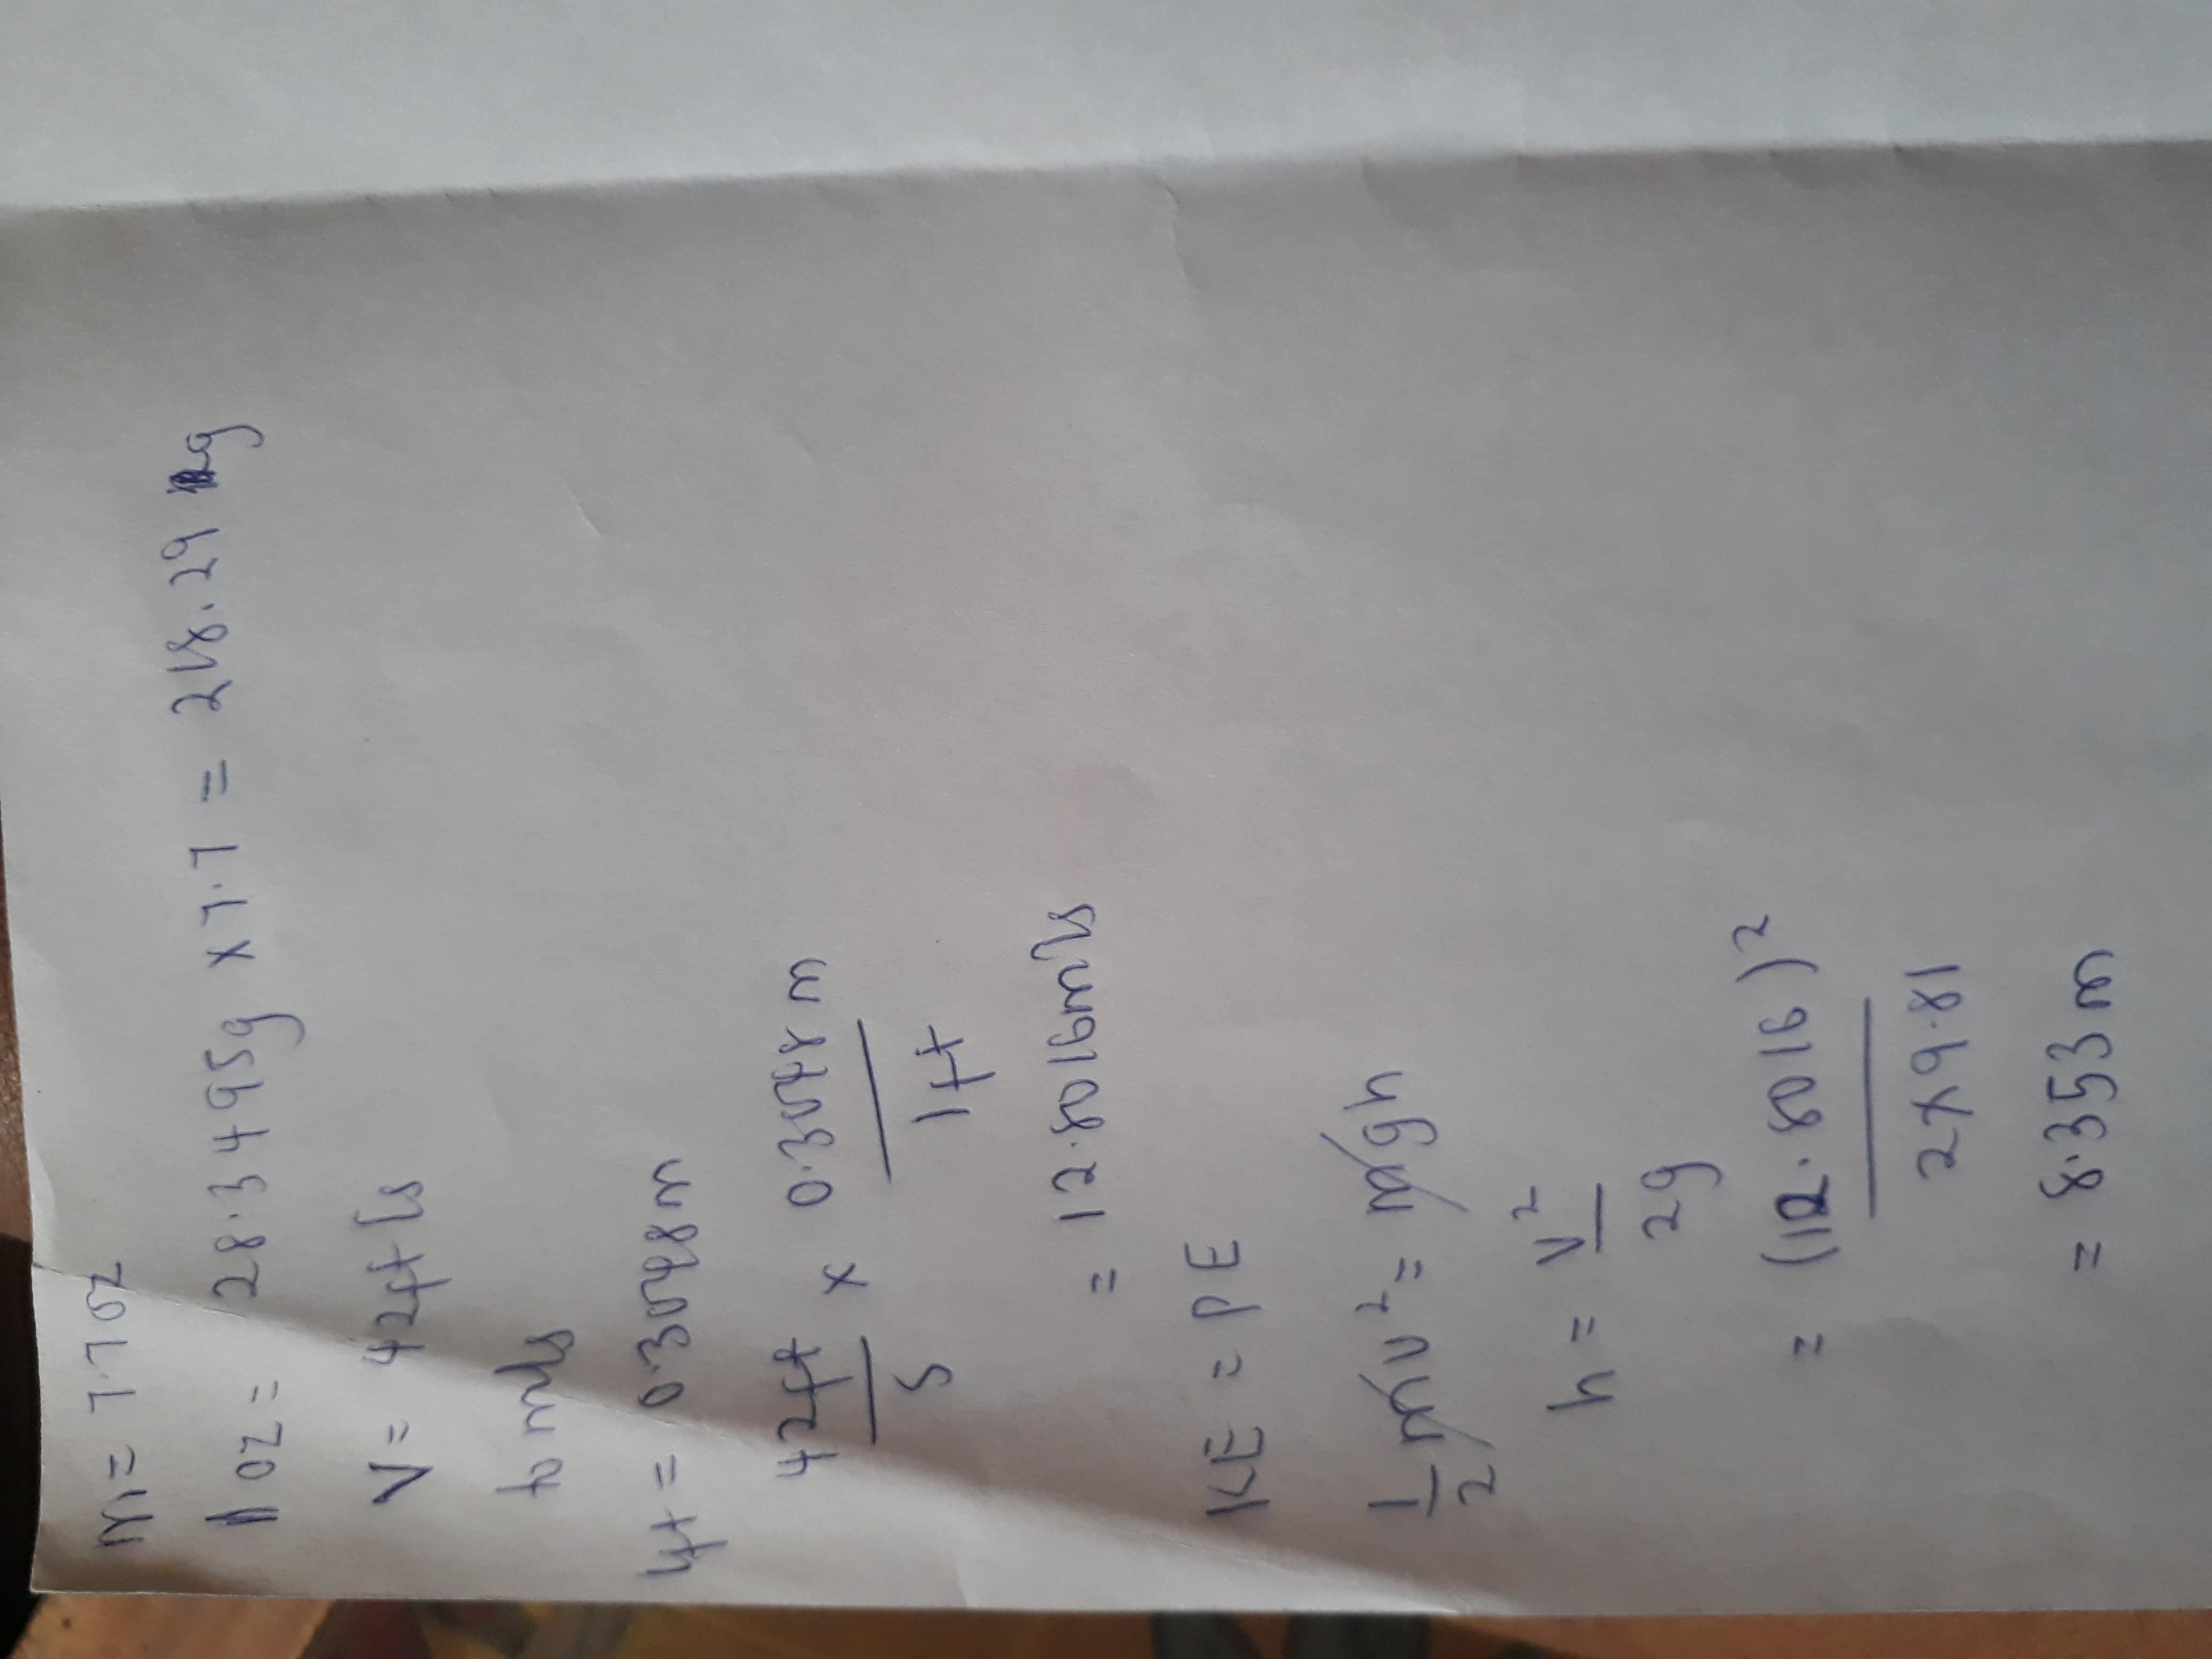 m = 7.7oz
1oz = 28.3495g x 7.7 = 218.29 g
V = 42ft/s
to m/s
1ft = 0.3048m
42ft/s x 0.3048m/1ft
= 12.8016m/s
KE = PE
1/2 mv² = mgh
h = v²/2g
= (12.8016)²/2x9.81
= 8.353m